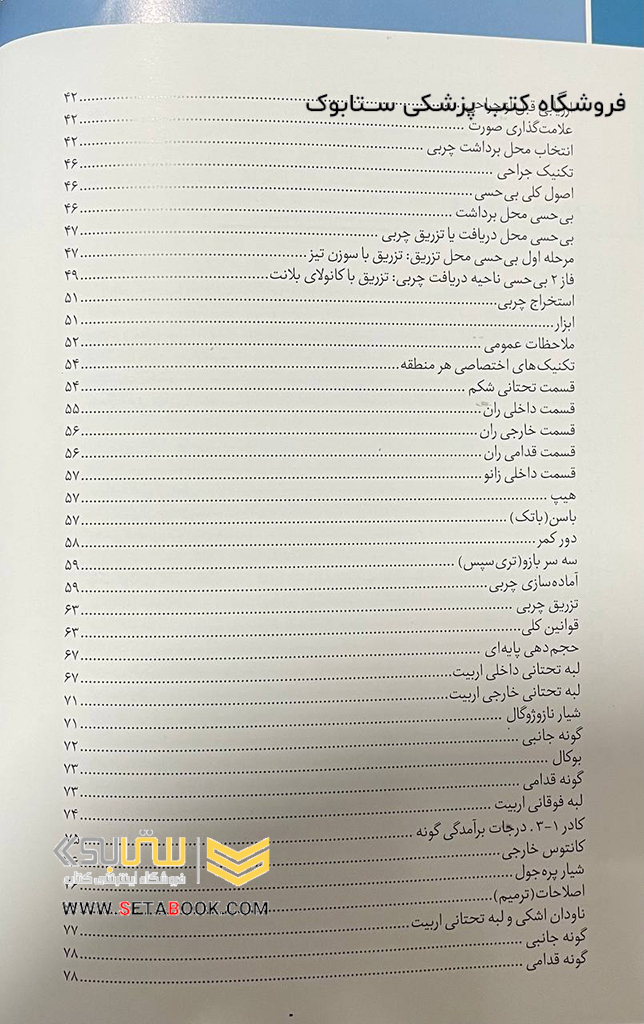 فروشگاه کتب پزشکی ستابوک
ارزیابی قبل از جراحی ۴۲
علامت‌گذاری صورت ۴۲
انتخاب محل برداشت چربی ۴۲
تکنیک جراحی ۴۶
اصول کلی بی‌حسی ۴۶
بی‌حسی محل برداشت ۴۶
بی‌حسی محل دریافت یا تزریق چربی ۴۷
مرحله اول بی‌حسی محل تزریق: تزریق با سوزن تیز ۴۷
فاز ۲ بی‌حسی ناحیه دریافت چربی: تزریق با کانولای بلانت ۴۹
استخراج چربی ۵۱
ابزار ۵۱
ملاحظات عمومی ۵۲
تکنیک‌های اختصاصی هر منطقه ۵۴
قسمت تحتانی شکم ۵۴
قسمت داخلی ران ۵۵
قسمت خارجی ران ۵۶
قسمت قدامی ران ۵۶
قسمت داخلی زانو ۵۷
هیپ ۵۷
باسن(باتک) ۵۷
دور کمر ۵۸
سه سر بازو(تری‌سپس) ۵۹
آماده‌سازی چربی ۵۹
تزریق چربی ۶۳
قوانین کلی ۶۳
حجم‌دهی پایه‌ای ۶۷
لبه تحتانی داخلی اربیت ۶۷
لبه تحتانی خارجی اربیت ۷۱
شیار نازوژوگال ۷۱
گونه جانبی ۷۲
بوکال ۷۳
گونه قدامی ۷۳
لبه فوقانی اربیت ۷۴
کادر ۱-۳. درجات برآمدگی گونه ۷۵
کانتوس خارجی
شیار پره‌جول
اصلاحات(ترمیم)
ناودان اشکی و لبه تحتانی اربیت ۷۷
گونه جانبی ۷۸
گونه قدامی ۷۸
ستابوک
فروشگاه اینترنتی کتاب
WWW.SETABOOK.COM